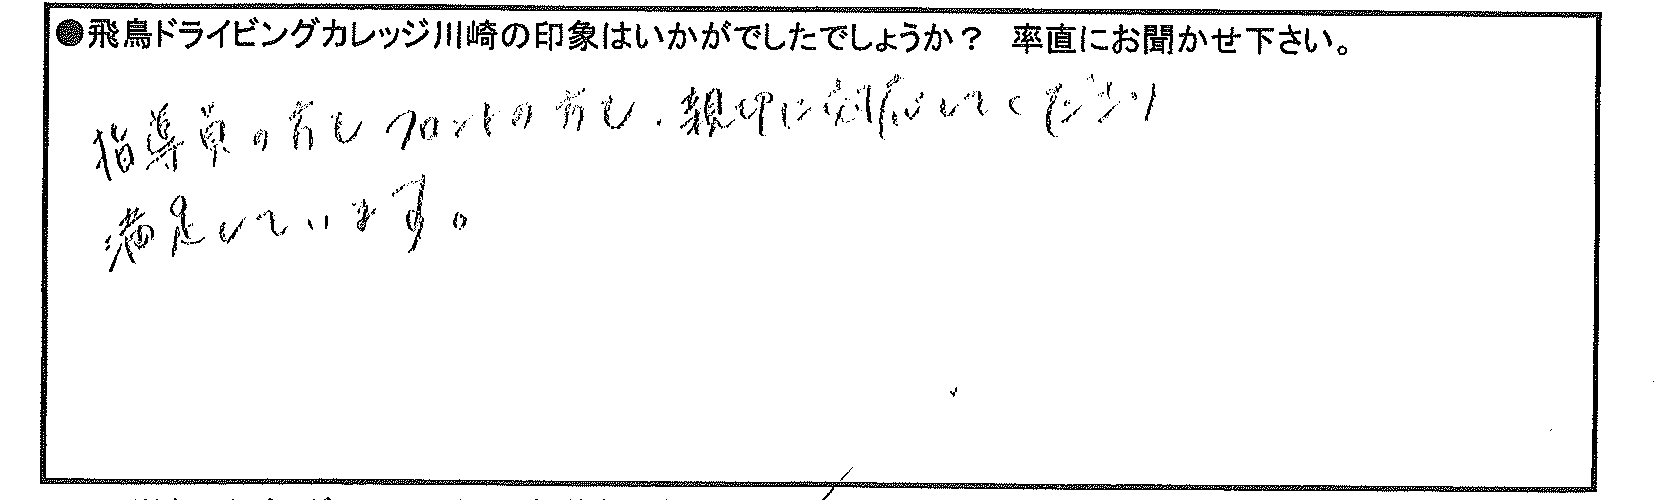 ●飛鳥ドライビングカレッジ川崎の印象はいかがでしたでしょうか？ 率直にお聞かせ下さい。
指導員の方もフロントの方も、親切に対応してくださり
満足しています。